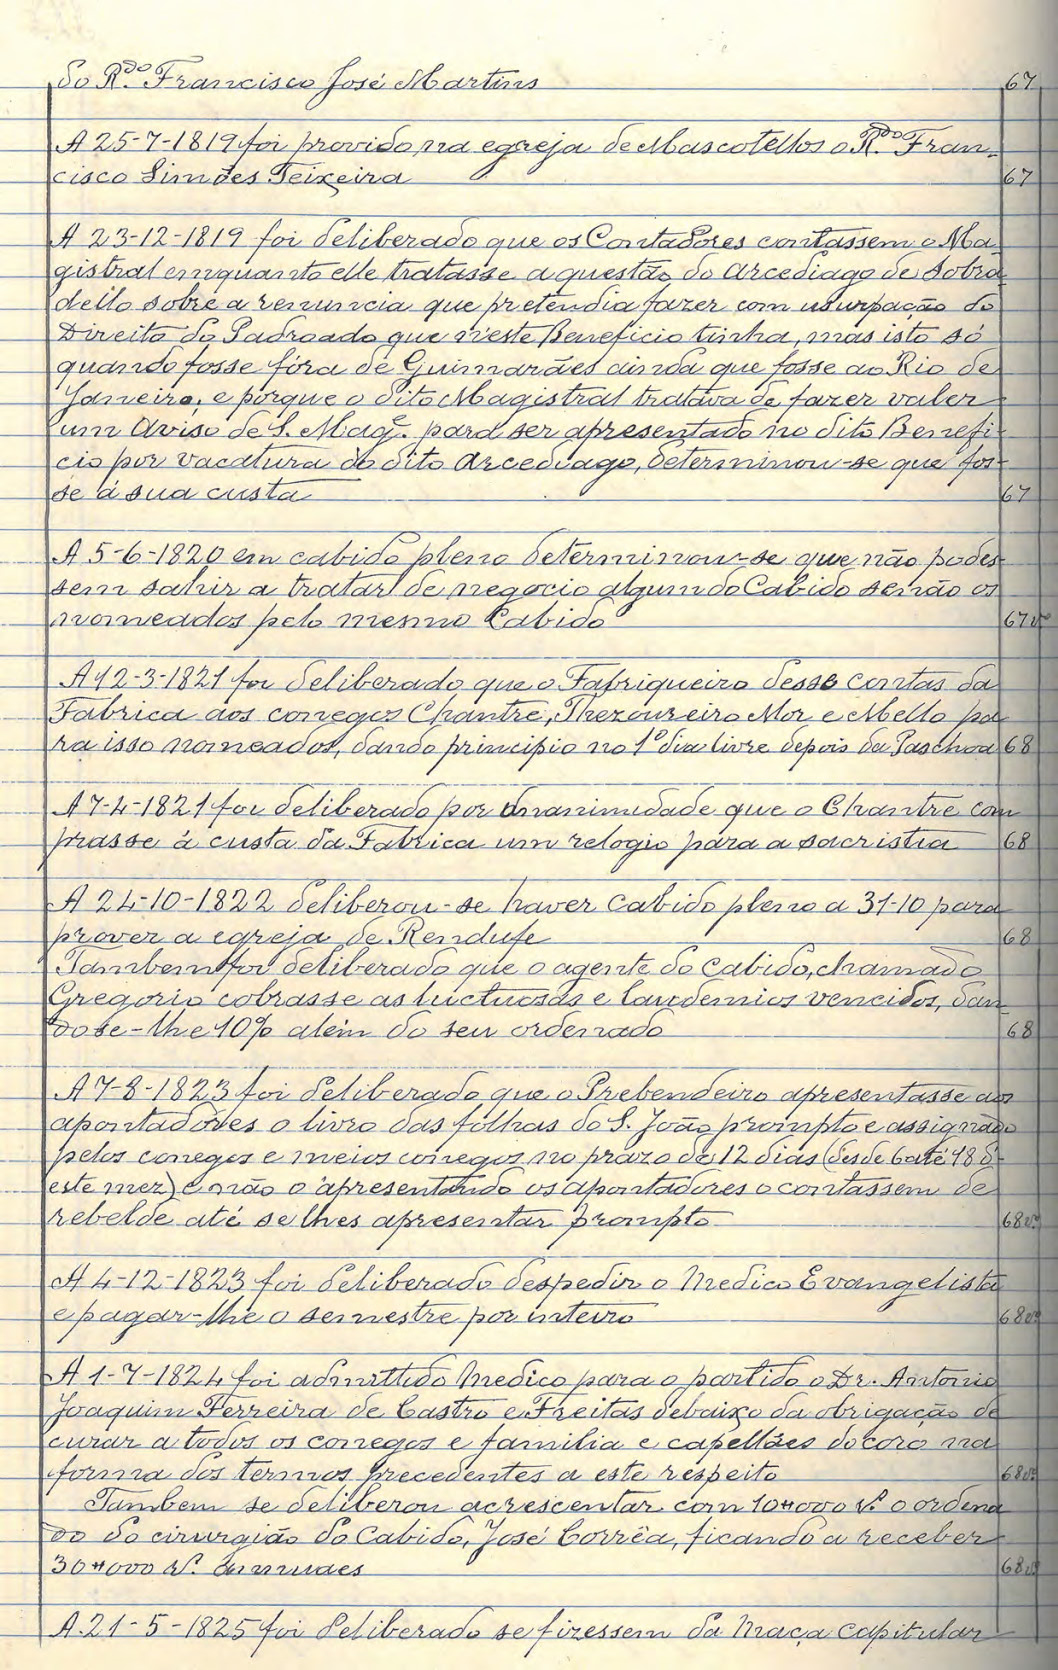 do R.do Francisco José Martins 67
A 25-7-1819 foi provido na egreja de Mascotellos o R.do Fran-
cisco Simões Teixeira 67
A 23-12-1819 foi deliberado que os Contadores contassem o Ma
gistral emquanto elle tratasse a questão do Arcediago de Sobra
dello sobre a renuncia que pretendia fazer com usurpação do
Direito do Padroado que n'este Beneficio tinha, mas isto só
quando fosse fóra de Guimarães ainda que fosse ao Rio de
Janeiro, e porque o dito Magistral tratava de fazer valer
um Aviso de S. Mag.e para ser apresentado no dito Benefi-
cio por vacatura do dito Arcediago, determinou-se que fos-
se á sua custa 67
A 5-6-1820 em cabido pleno determinou-se que não podes-
sem sahir a tratar de negocio algum do Cabido senão os
nomeados pelo mesmo Cabido 67vº
A 12-3-1821 foi deliberado que o Fabriqueiro desse contas da
Fabrica aos conegos Chantre, Thezoureiro Mor e Mello pa
ra isso nomeados, dando principio no 1º dia livre depois da Paschoa 68
A 7-4-1821 foi deliberado por unanimidade que o Chantre com
prasse á custa da Fabrica um relogio para a sacristia 68
A 24-10-1822 deliberou-se haver Cabido pleno a 31-10 para
prover a egreja de Rendufe 68
Tambem foi deliberado que o agente do Cabido, chamado
Gregorio cobrasse as luctuosas e laudemios vencidos, dan-
do se-lhe 10% além do seu ordenado 68
A 7-8-1823 foi deliberado que o Prebendeiro apresentasse aos
apontadores o livro das folhas do S. João prompto e assignado
pelos conegos e meios conegos no prazo de 12 dias (desde 6 até 18 d'
este mez) e não o apresentando os apontadores o contassem de
rebelde até se lhes apresentar prompto 68vº
A 4-12-1823 foi deliberado despedir o Medico Evangelista
e pagar-lhe o semestre por inteiro 68vº
A 1-7-1824 foi admittido Medico para o partido o Dr. Antonio
Joaquim Ferreira de Castro e Freitas debaixo da obrigação de
curar a todos os conegos e familia e capellães do coro na
forma dos termos precedentes a este respeito 68vº
Tambem se deliberou acrescentar com 10#000 r.s o ordena
do do cirurgião do Cabido, José Corrêa, ficando a receber
30#000 r.s annuaes 68vº
A 21-5-1825 foi deliberado se fizessem da Maça capitular